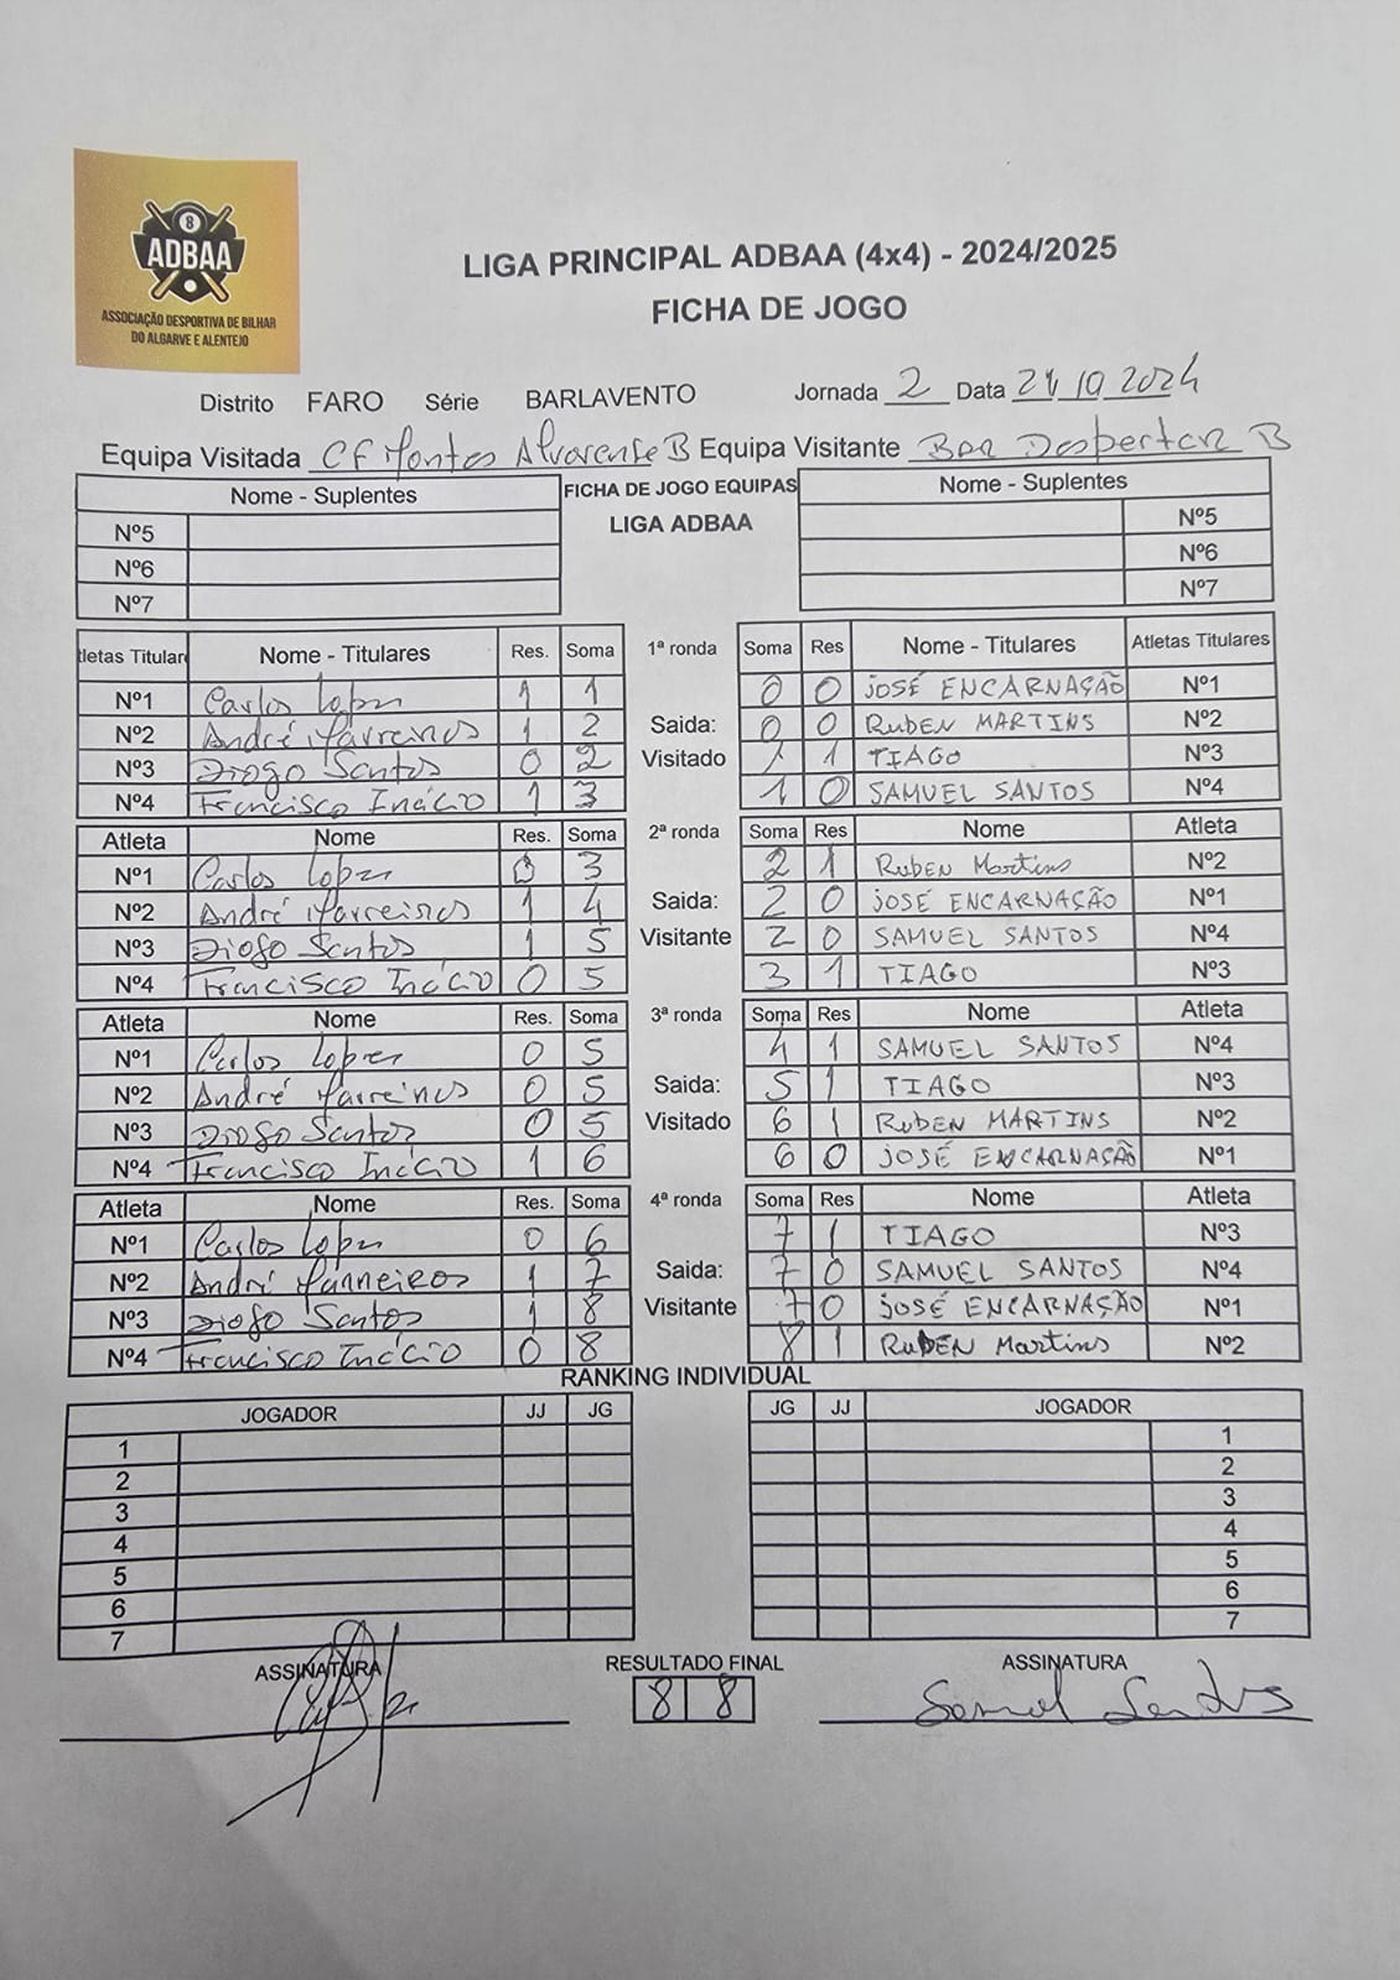 8
ADBAA
ASSOCIAÇÃO DESPORTIVA DE BILHAR
DO ALGARVE E ALENTEJO
LIGA PRINCIPAL ADBAA (4x4) - 2024/2025
FICHA DE JOGO
Distrito FARO Série BARLAVENTO Jornada 2 Data 21 10 2024
Equipa Visitada CF Montes Alvorense B Equipa Visitante Bar Despertar B
Nome - Suplentes FICHA DE JOGO EQUIPAS Nome - Suplentes
LIGA ADBAA
Nº5 Nº5
Nº6 Nº6
Nº7 Nº7
tletas Titular Nome - Titulares Res. Soma 1ª ronda Soma Res Nome - Titulares Atletas Titulares
Nº1 Carlos Lopes 1 1 0 0 JOSÉ ENCARNAÇÃO Nº1
Nº2 André Marreiros 1 2 Saida: 0 0 RUBEN MARTINS Nº2
Nº3 Diogo Santos 0 2 Visitado 1 1 TIAGO Nº3
Nº4 Francisco Inácio 1 3 1 0 SAMUEL SANTOS Nº4
Atleta Nome Res. Soma 2ª ronda Soma Res Nome Atleta
Nº1 Carlos Lopes 0 3 2 1 Ruben Martins Nº2
Nº2 André Marreiros 1 4 Saida: 2 0 JOSÉ ENCARNAÇÃO Nº1
Nº3 Diogo Santos 1 5 Visitante 2 0 SAMUEL SANTOS Nº4
Nº4 Francisco Inácio 0 5 3 1 TIAGO Nº3
Atleta Nome Res. Soma 3ª ronda Soma Res Nome Atleta
Nº1 Carlos Lopes 0 5 4 1 SAMUEL SANTOS Nº4
Nº2 André Marreiros 0 5 Saida: 5 1 TIAGO Nº3
Nº3 Diogo Santos 0 5 Visitado 6 1 RUBEN MARTINS Nº2
Nº4 Francisco Inácio 1 6 6 0 JOSÉ ENCARNAÇÃO Nº1
Atleta Nome Res. Soma 4ª ronda Soma Res Nome Atleta
Nº1 Carlos Lopes 0 6 7 1 TIAGO Nº3
Nº2 André Marreiros 1 7 Saida: 7 0 SAMUEL SANTOS Nº4
Nº3 Diogo Santos 1 8 Visitante 7 0 JOSÉ ENCARNAÇÃO Nº1
Nº4 Francisco Inácio 0 8 8 1 RUBEN Martins Nº2
RANKING INDIVIDUAL
JOGADOR JJ JG JG JJ JOGADOR
1 1
2 2
3 3
4 4
5 5
6 6
7 7
ASSINATURA RESULTADO FINAL ASSINATURA
8 8 Samuel Santos